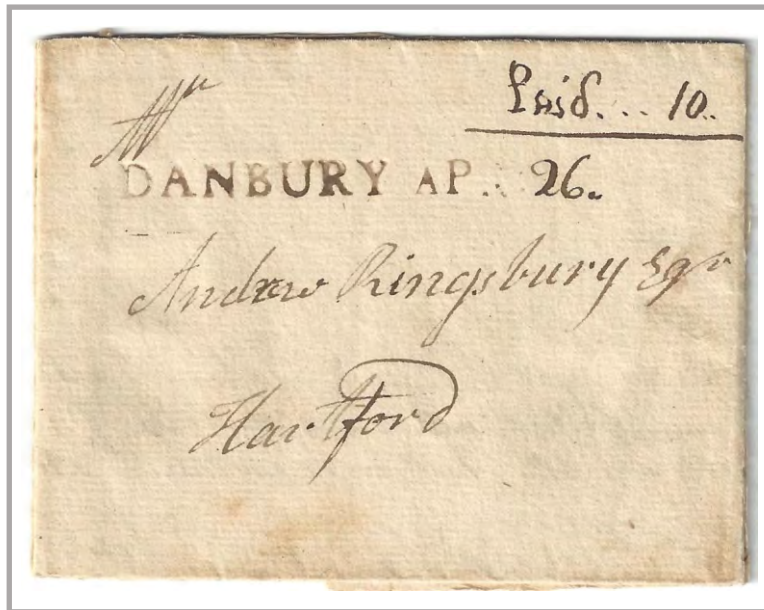 Paid... 10..
DANBURY AP.. 26.
Andrew Kingsbury Esqr
Hartford